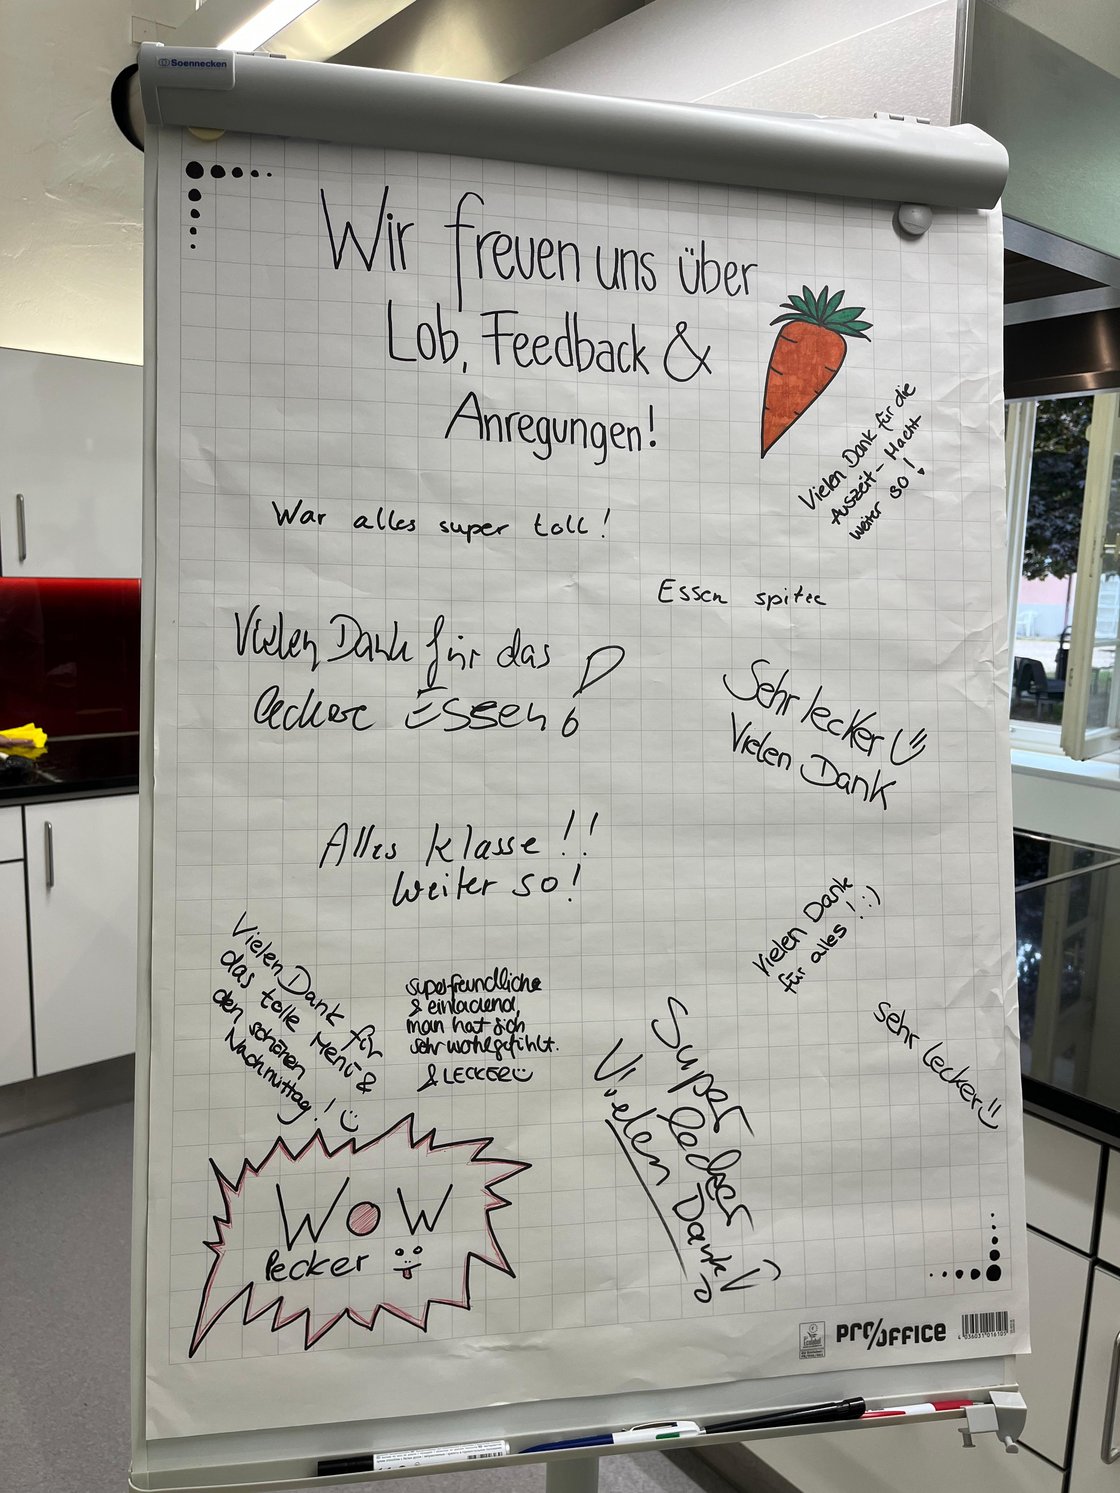 Soennecken
Wir freuen uns über
Lob, Feedback &
Anregungen!
Vielen Dank für die
Auszeit - Macht
weiter so!
War alles super toll!
Essen spitee
Vielen Dank für das
leckere Essen!
Sehr lecker
Vielen Dank
Alles klasse!!
weiter so!
Vielen Dank
für alles! :)
Vielen Dank für
das tolle Menü &
den schönen
Nachmittag!
superfreundliche
& einladend,
man hat sich
sehr wohlgefühlt.
& LECKER
Super
lecker
Vielen Dank!
sehr lecker
WOW
lecker
PRO/OFFICE
4 036031 016105